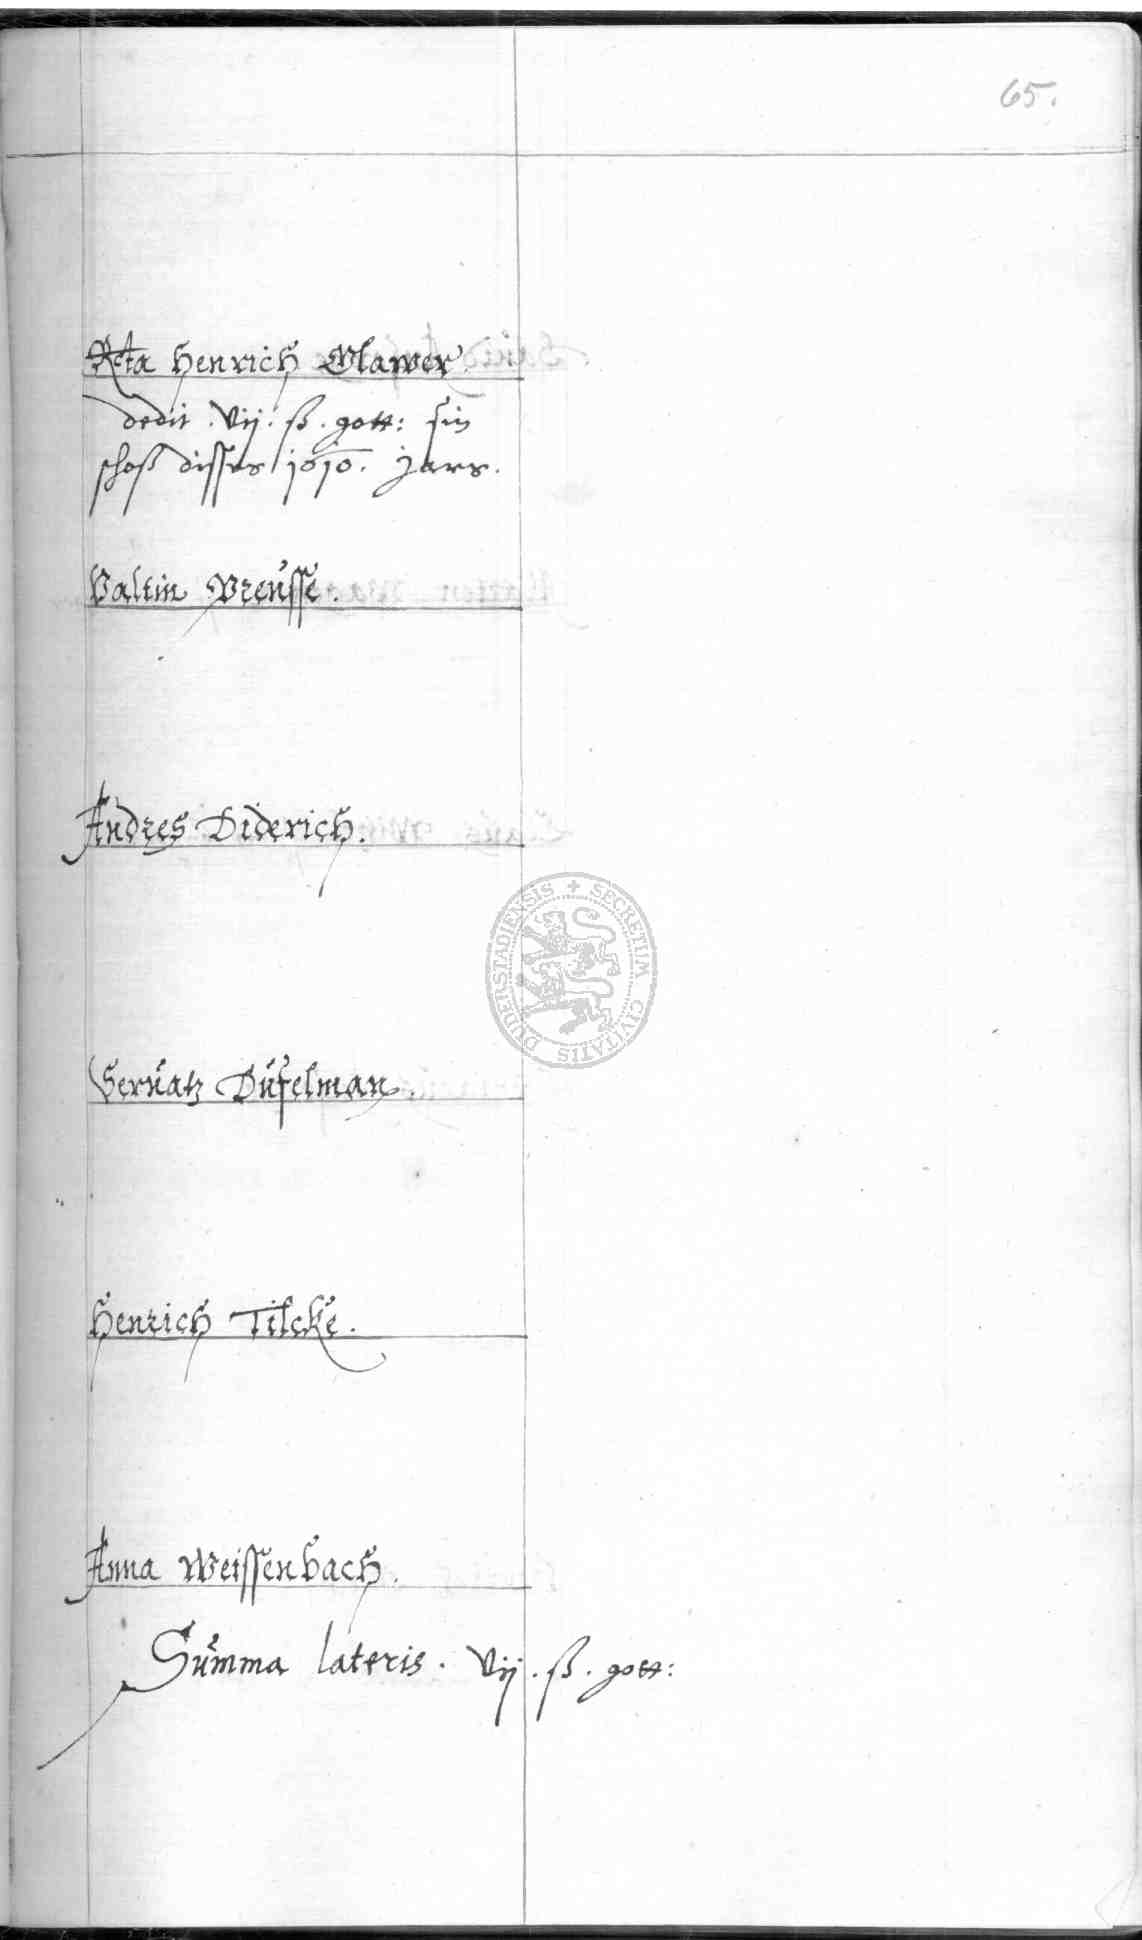 65.
Rcta Henrich Clawer.
dedit . vij . ß . gott: sin
schoß disses 1610. Jars.
Valtin Preusse.
Andres Diderich.
Servatz Düfelman.
Henrich Tilcke.
Anna Weissenbach.
Summa lateris . vij . ß . gott:
DUDERSTADIENSIS + SECRETUM CIVITATIS